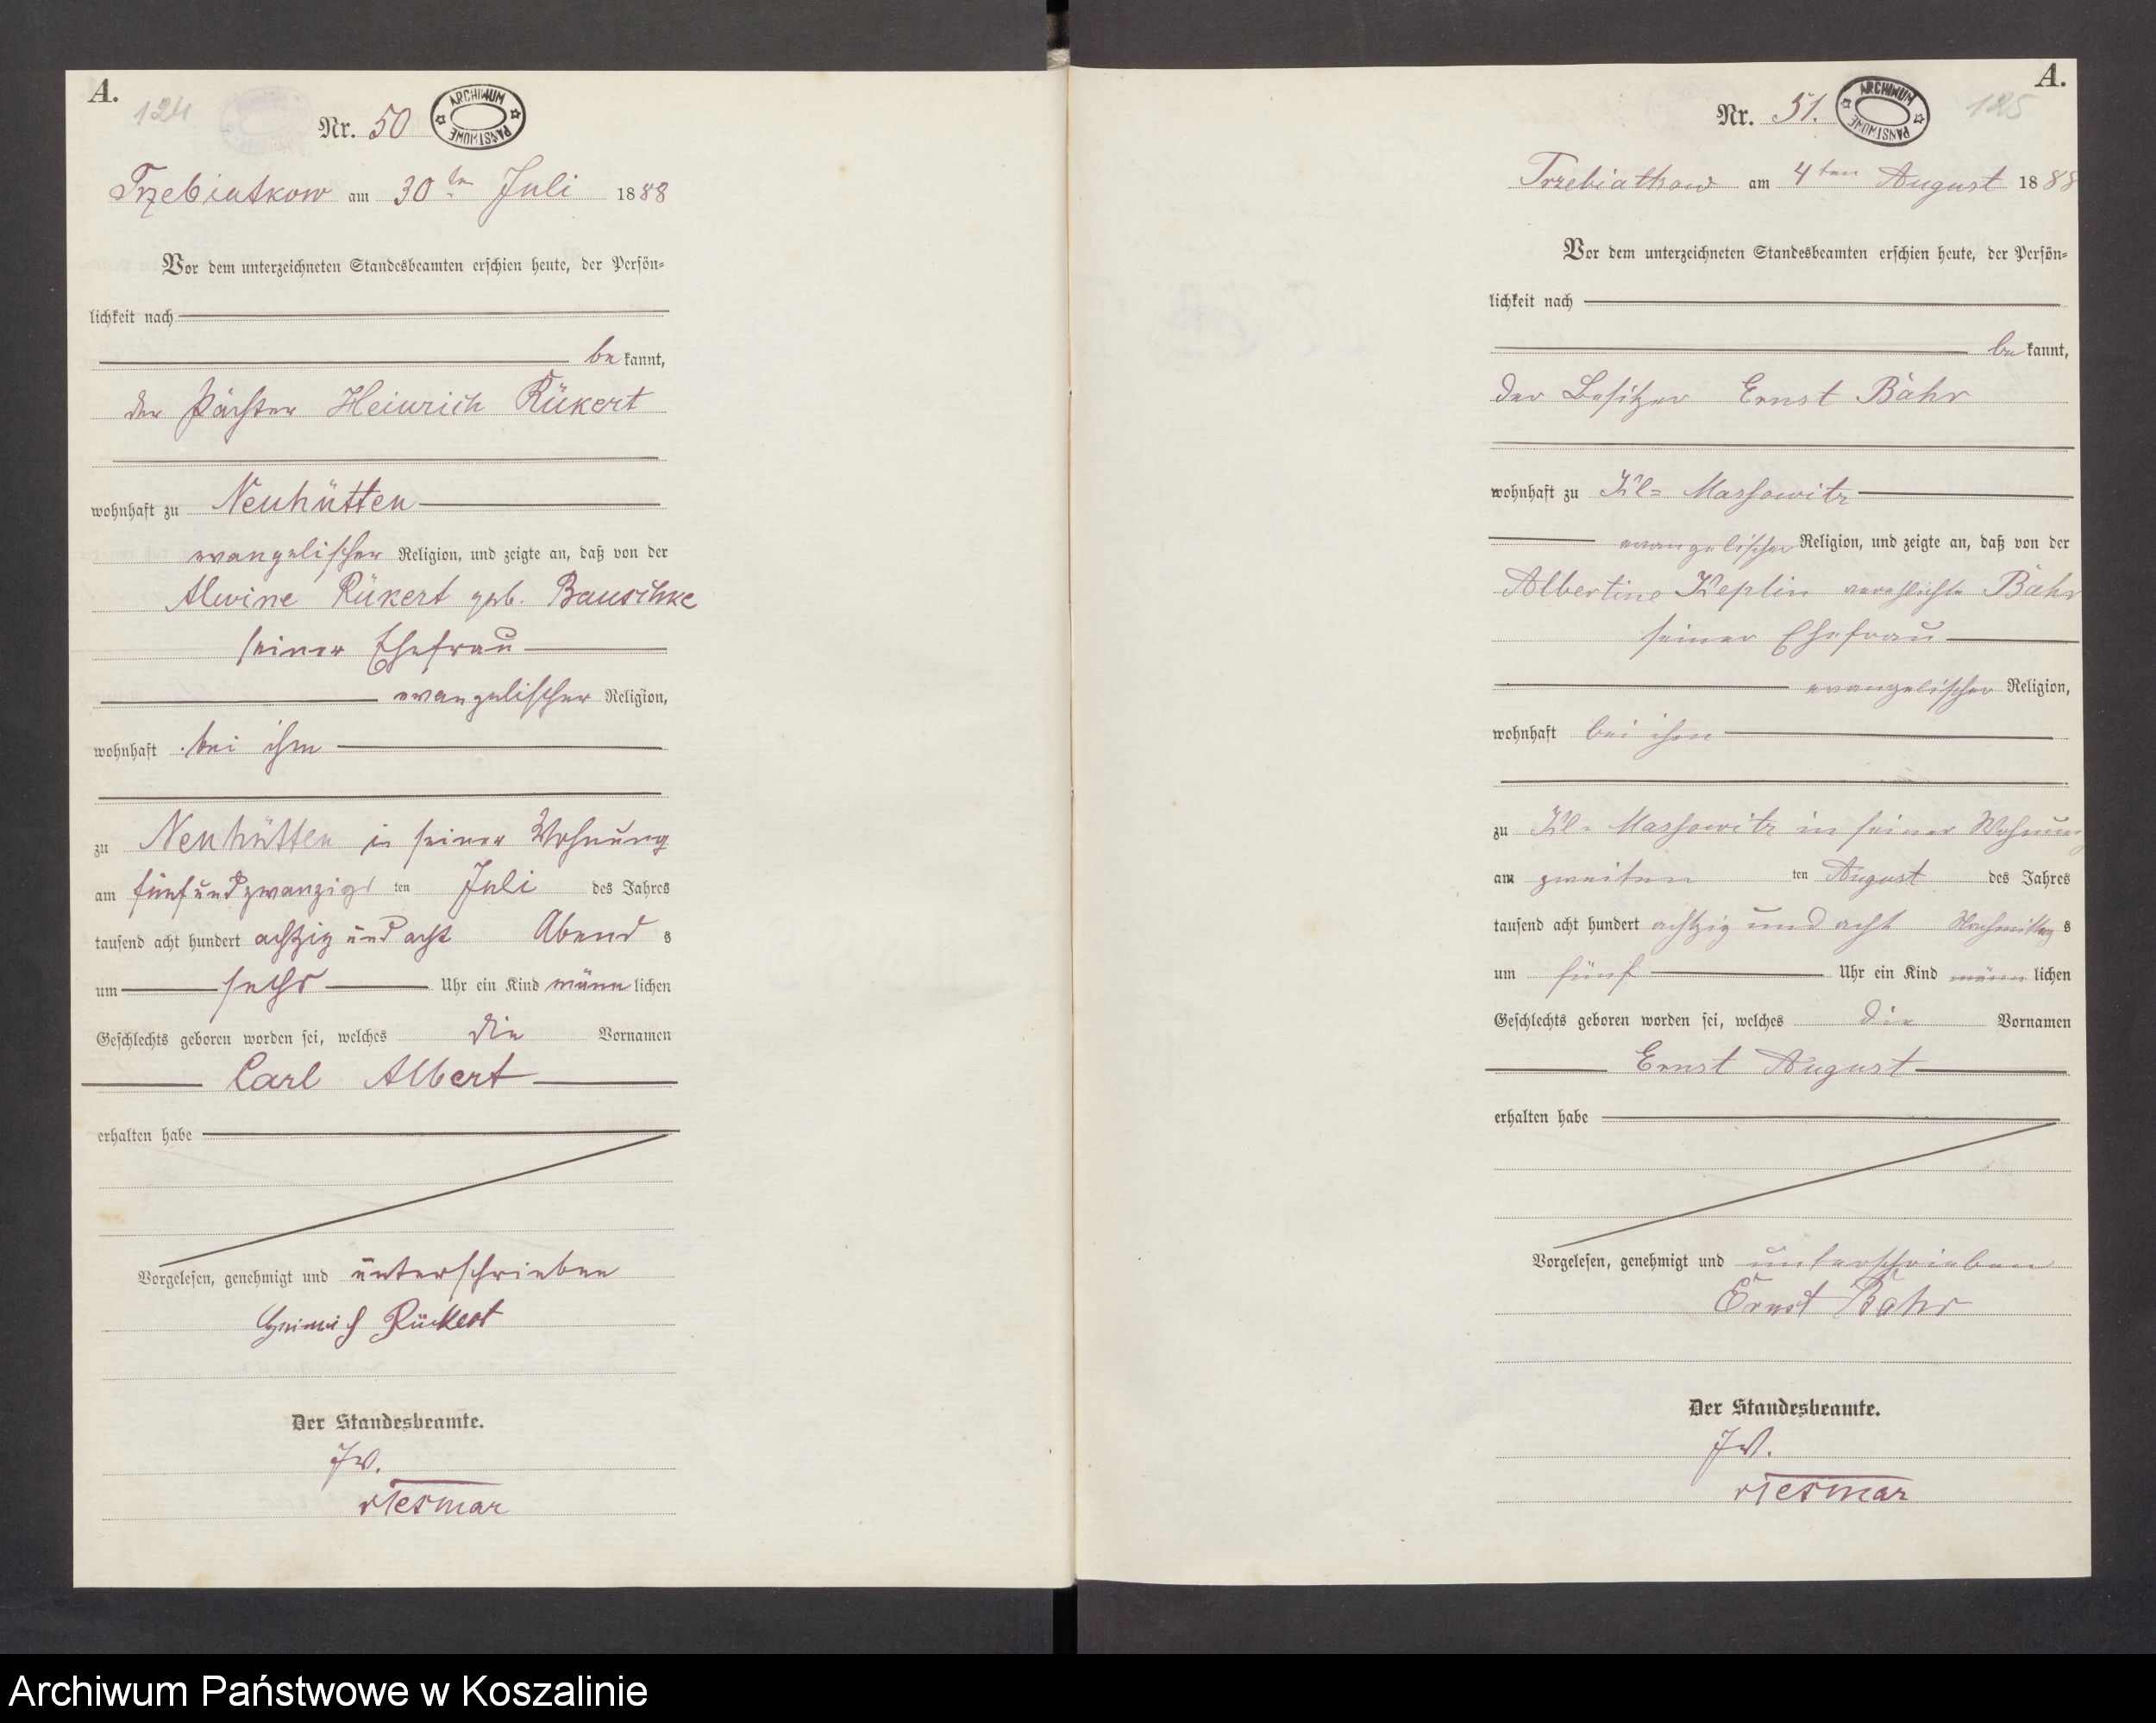 A.
124
Nr. 50
ARCHIWUM PAŃSTWOWE
Trzebiatkow am 30ten Juli 1888
Vor dem unterzeichneten Standesbeamten erschien heute, der Persön-
lichkeit nach
be kannt,
der Pächter Heinrich Rükert
wohnhaft zu Neuhütten
evangelischer Religion, und zeigte an, daß von der
Alwine Rükert geb. Bauschke
seiner Ehefrau
evangelischer Religion,
wohnhaft bei ihm
zu Neuhütten in seiner Wohnung
am fünfundzwanzigs ten Juli des Jahres
tausend acht hundert achtzig und acht Abend s
um sechs Uhr ein Kind männ lichen
Geschlechts geboren worden sei, welches die Vornamen
Carl Albert
erhalten habe
Vorgelesen, genehmigt und unterschrieben
Heinrich Rückert
Der Standesbeamte.
JV.
vTesmar
A.
125
Nr. 51.
ARCHIWUM PAŃSTWOWE
Trzebiatkow am 4ten August 1888
Vor dem unterzeichneten Standesbeamten erschien heute, der Persön-
lichkeit nach
be kannt,
der Besitzer Ernst Bahr
wohnhaft zu Kl= Massowitz
evangelischer Religion, und zeigte an, daß von der
Albertine Keplin verehlichte Bahr
seiner Ehefrau
evangelischer Religion,
wohnhaft bei ihm
zu Kl= Massowitz in seiner Wohnung
am zweiten ten August des Jahres
tausend acht hundert achtzig und acht Nachmittag s
um fünf Uhr ein Kind männ lichen
Geschlechts geboren worden sei, welches die Vornamen
Ernst August
erhalten habe
Vorgelesen, genehmigt und unterschrieben
Ernst Bahr
Der Standesbeamte.
JV.
vTesmar
Archiwum Państwowe w Koszalinie